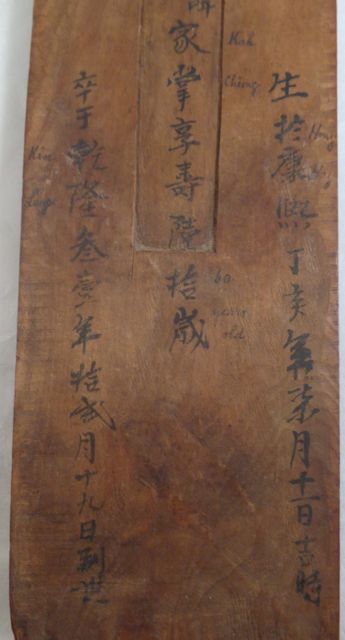 生於康熙丁亥年柒月十一日吉時
Hong
家掌享壽陸拾歲
Kah
Chiong
60
years
old
卒于乾隆叁壹年拾弍月十九日別世
Kien
Lung